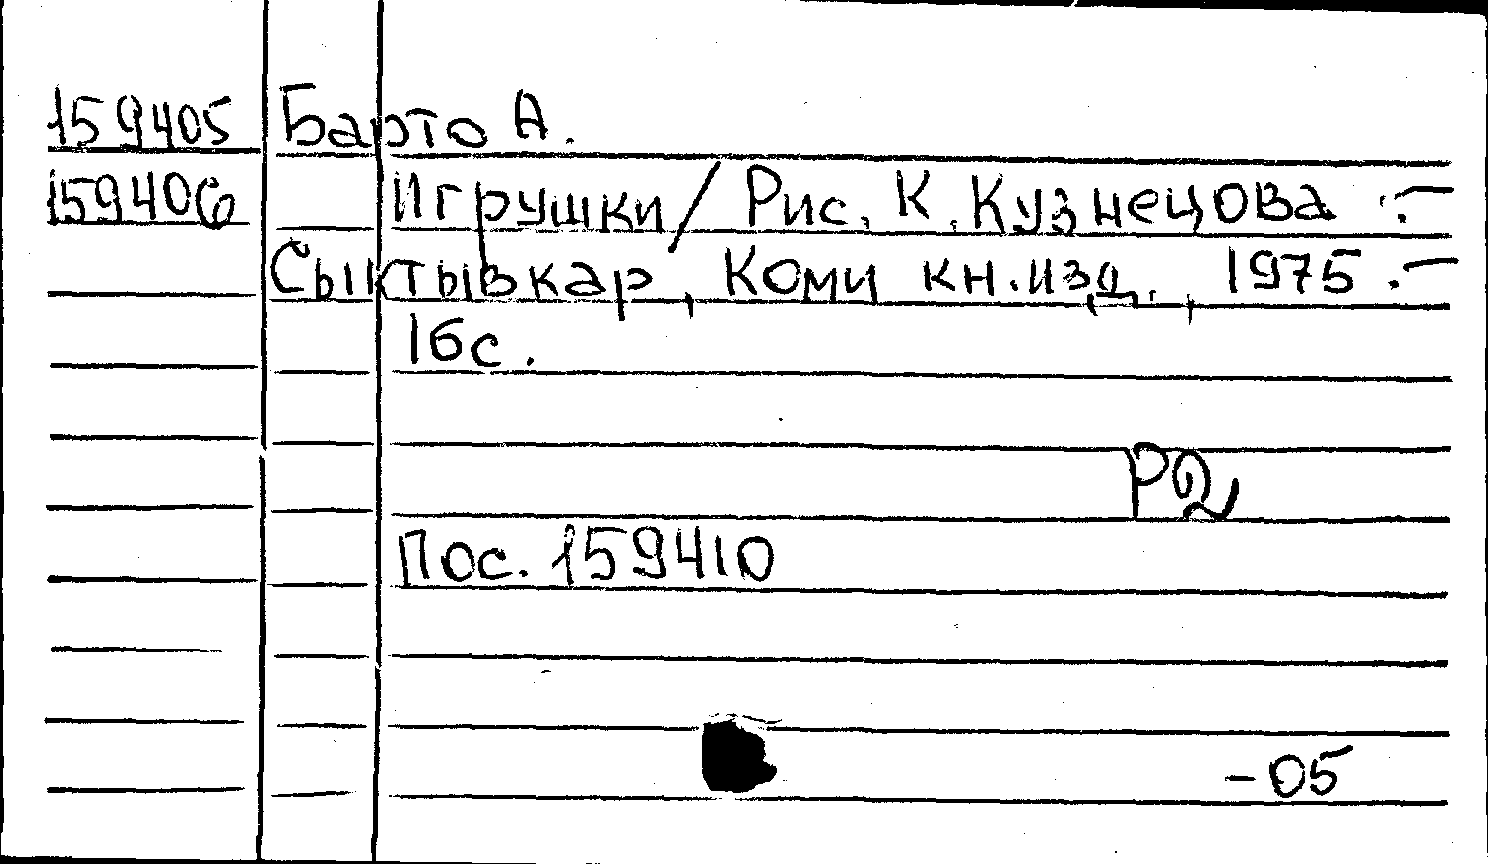 159405 Барто А.
159406 Игрушки / Рис. К. Кузнецова. –
Сыктывкар, Коми кн. изд., 1975. –
16с.
Р2
Пос. 159410
–05